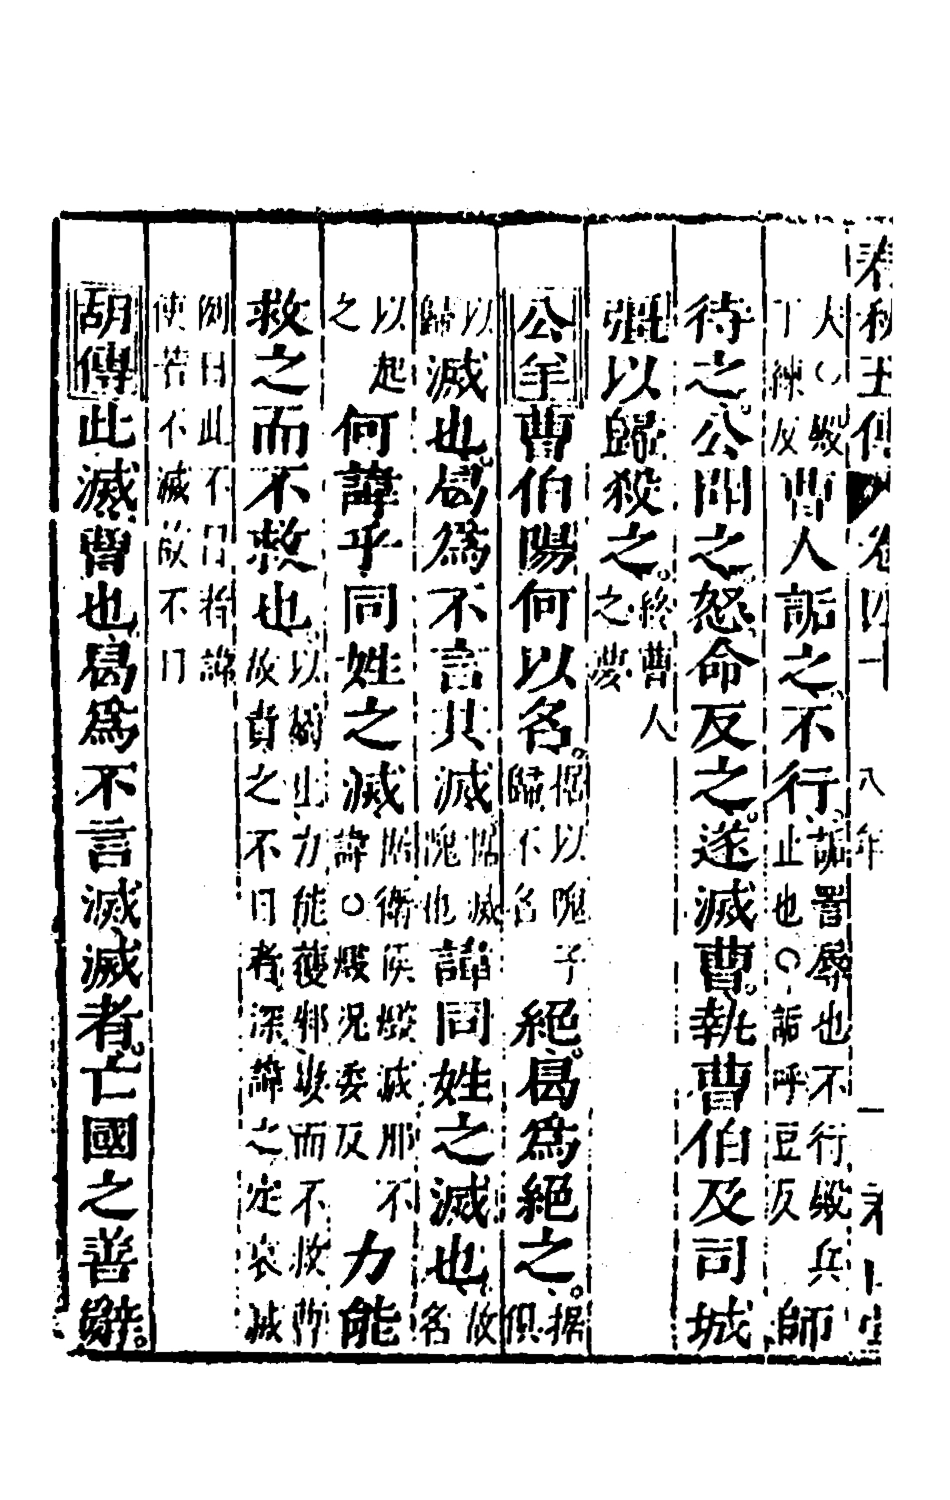 春秋
卷四十一 八年
夫〇殿
丁練反
曹人詬之不行
詬詈辱也不行殿兵
止也〇詬呼豆反
師
待之公聞之怒命反之遂滅曹執曹伯及司城
彊以歸殺之
終曹人
之夢
公羊曹伯陽何以名
據以隗子
歸不名
絕曷爲絕之
據
俱
以
歸
滅也曷爲不言其滅
據滅
隗也
諱同姓之滅也
故
名
以起
之
何諱乎同姓之滅
據衛侯燬滅邢不
諱〇燬況委反
力能
救之而不救也
以屬上力能獲邾婁而不救曹
故責之不日者深諱之定哀滅
例日此不日者諱
使若不滅故不日
胡傳此滅曹也曷爲不言滅滅者亡國之善辭